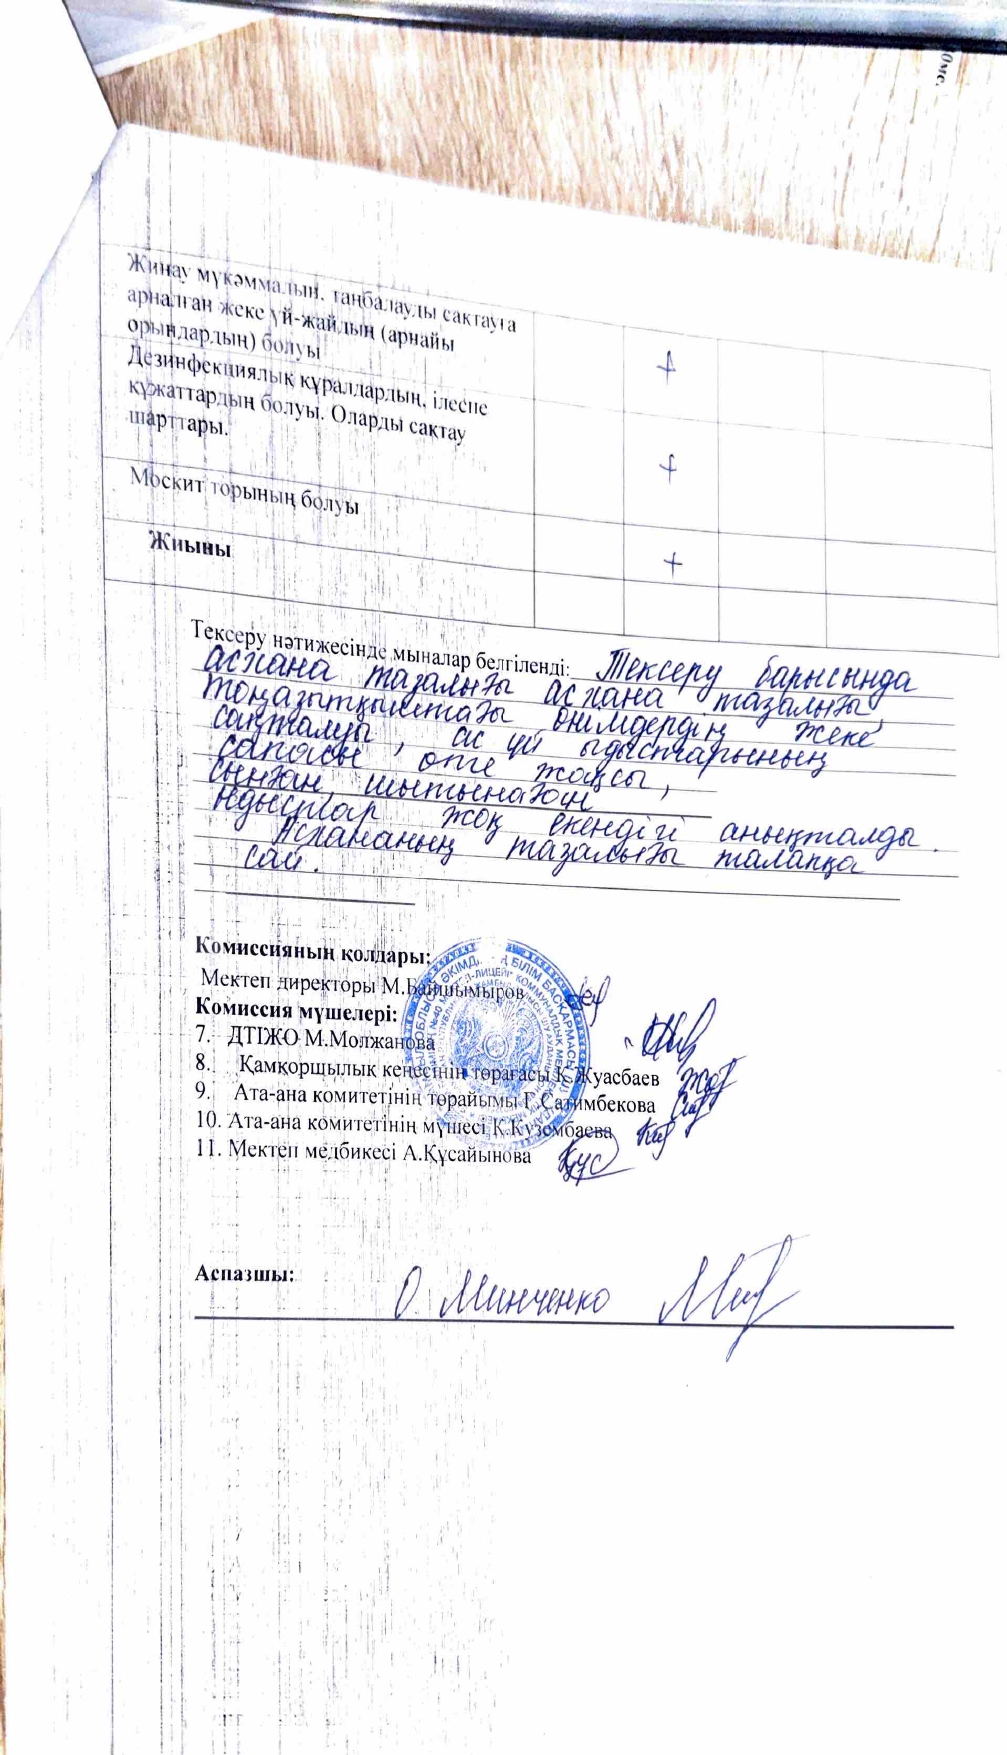 10мс.
Жинау мүкәммалын, таңбалауды сақтауға
арналған жеке үй-жайдың (арнайы
орындардың) болуы
+
Дезинфекциялық құралдардың, ілеспе
құжаттардың болуы. Оларды сақтау
шарттары.
+
Москит торының болуы
+
Жиыны
Тексеру нәтижесінде мыналар белгіленді: Тексеру барысында
асхана тазалығы асхана тазалығы,
тоңазытқыштағы өнімдердің жеке
сақталуы, ас үй ыдыстарының
сапасы өте жақсы,
сынған, шытынаған
ыдыстар жоқ екендігі анықталды.
Асхананың тазалығы талапқа
сай.
Комиссияның қолдары:
Мектеп директоры М.Байшымыров
Комиссия мүшелері:
7. ДТІЖО М.Молжанова
8. Қамқоршылық кеңесінің төрағасы К.Жуасбаев
9. Ата-ана комитетінің төрайымы Г.Сатимбекова
10. Ата-ана комитетінің мүшесі Қ.Күзембаева
11. Мектеп медбикесі А.Құсайынова
Аспазшы: О Минченко